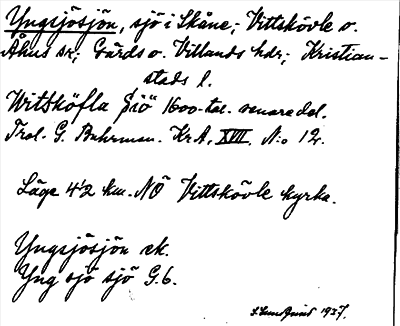 Yngsjösjön, sjö i Skåne; Vittskövle o.
Åhus sn; Gärds o. Villands hdr; Kristian-
stads l.
Witsköfla Siö 1600-tal. senare del.
Trol. G. Buhrman. Kr.A. XVII. N:o 12.
Läge 4½ km. NÖ Vittskövle kyrka.
Yngsjösjön ek.
Yngsjö sjö G.6.
1937.